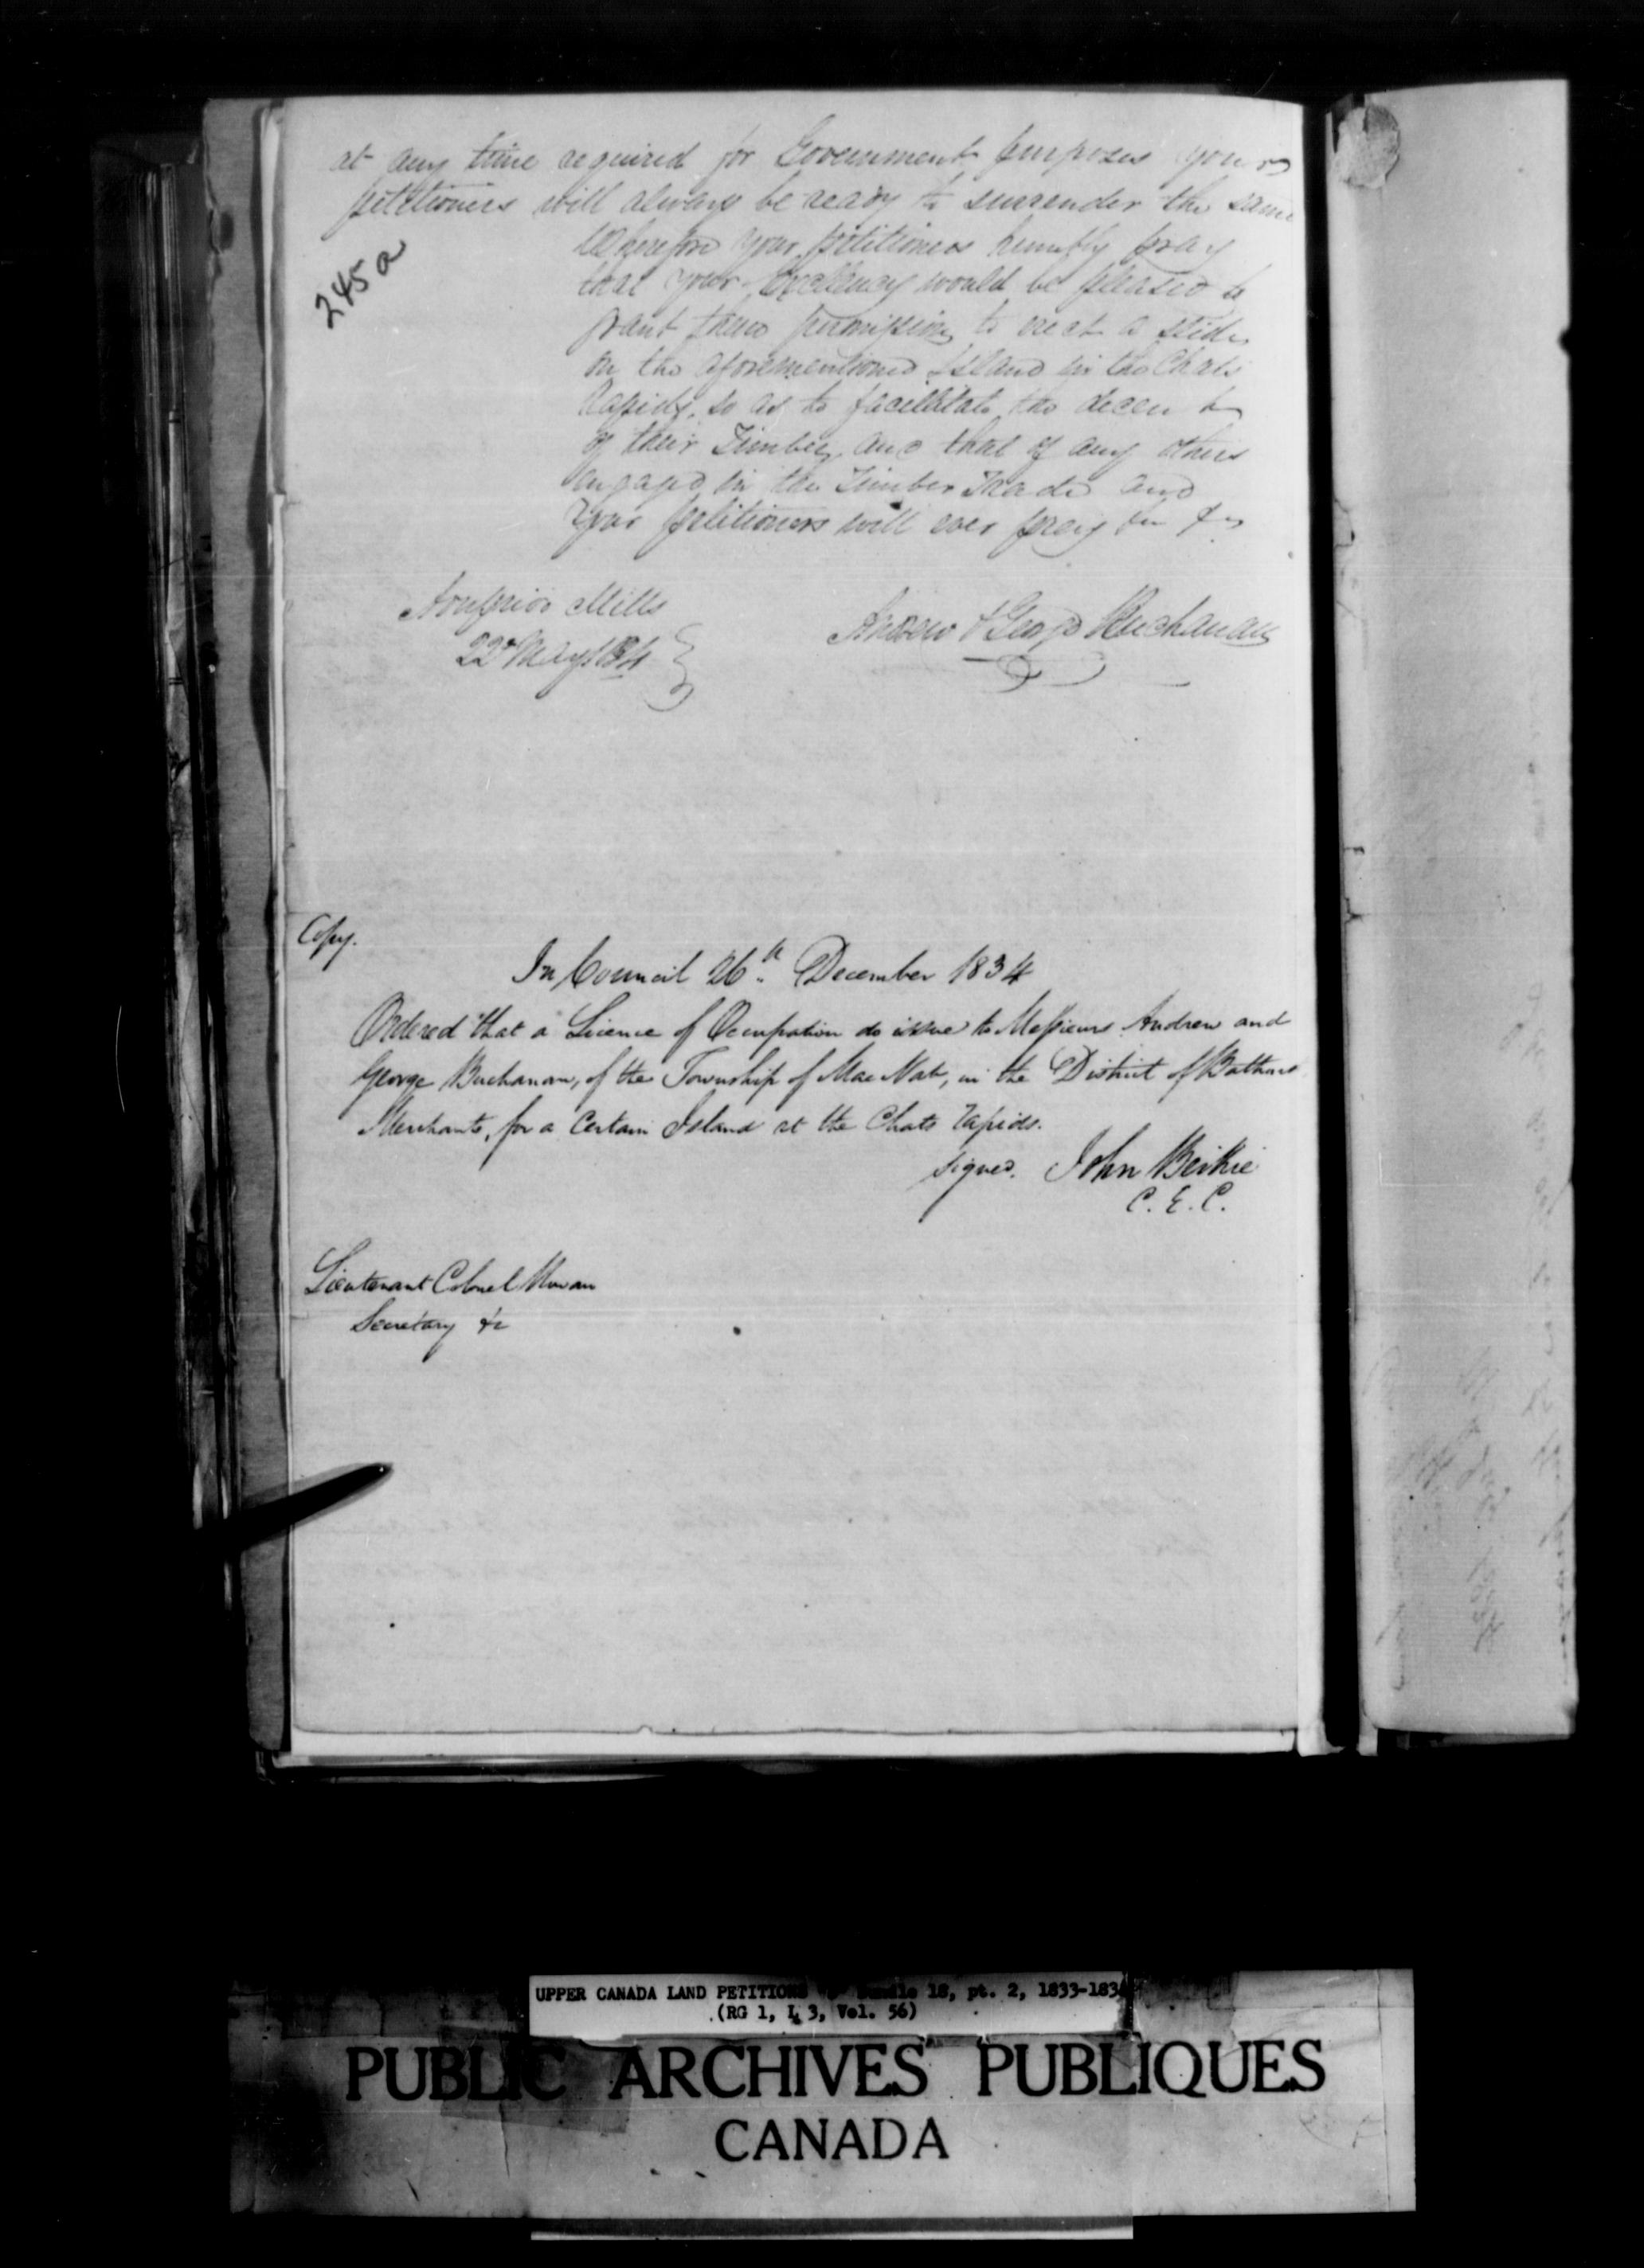 at any time required for Government purposes your
petitioners will always be ready to surrender the same
245 a
Wherefore your petitioners humbly pray
that your Excellency would be pleased to
grant them permission to erect a slide
on the aforementioned Island in the Chats
Rapids, so as to facilitate the decent
of their Timber and that of any others
engaged in the Timber Trade and
your petitioners will ever pray &c
Arnprior Mills
22d May 1834
Andrew & George Buchanan
Copy.
In Council 26th December 1834
Ordered that a Licence of Occupation do issue to Messieurs Andrew and
George Buchanan, of the Township of MacNab, in the District of Bathurst
Merchants, for a Certain Island at the Chats Rapids.
signed. John Beikie
C. E. C.
Lieutenant Colonel Rowan
Secretary &c
UPPER CANADA LAND PETITIONS 18, pt. 2, 1833-183
(RG 1, L 3, Vol. 56)
PUBLIC ARCHIVES PUBLIQUES
CANADA